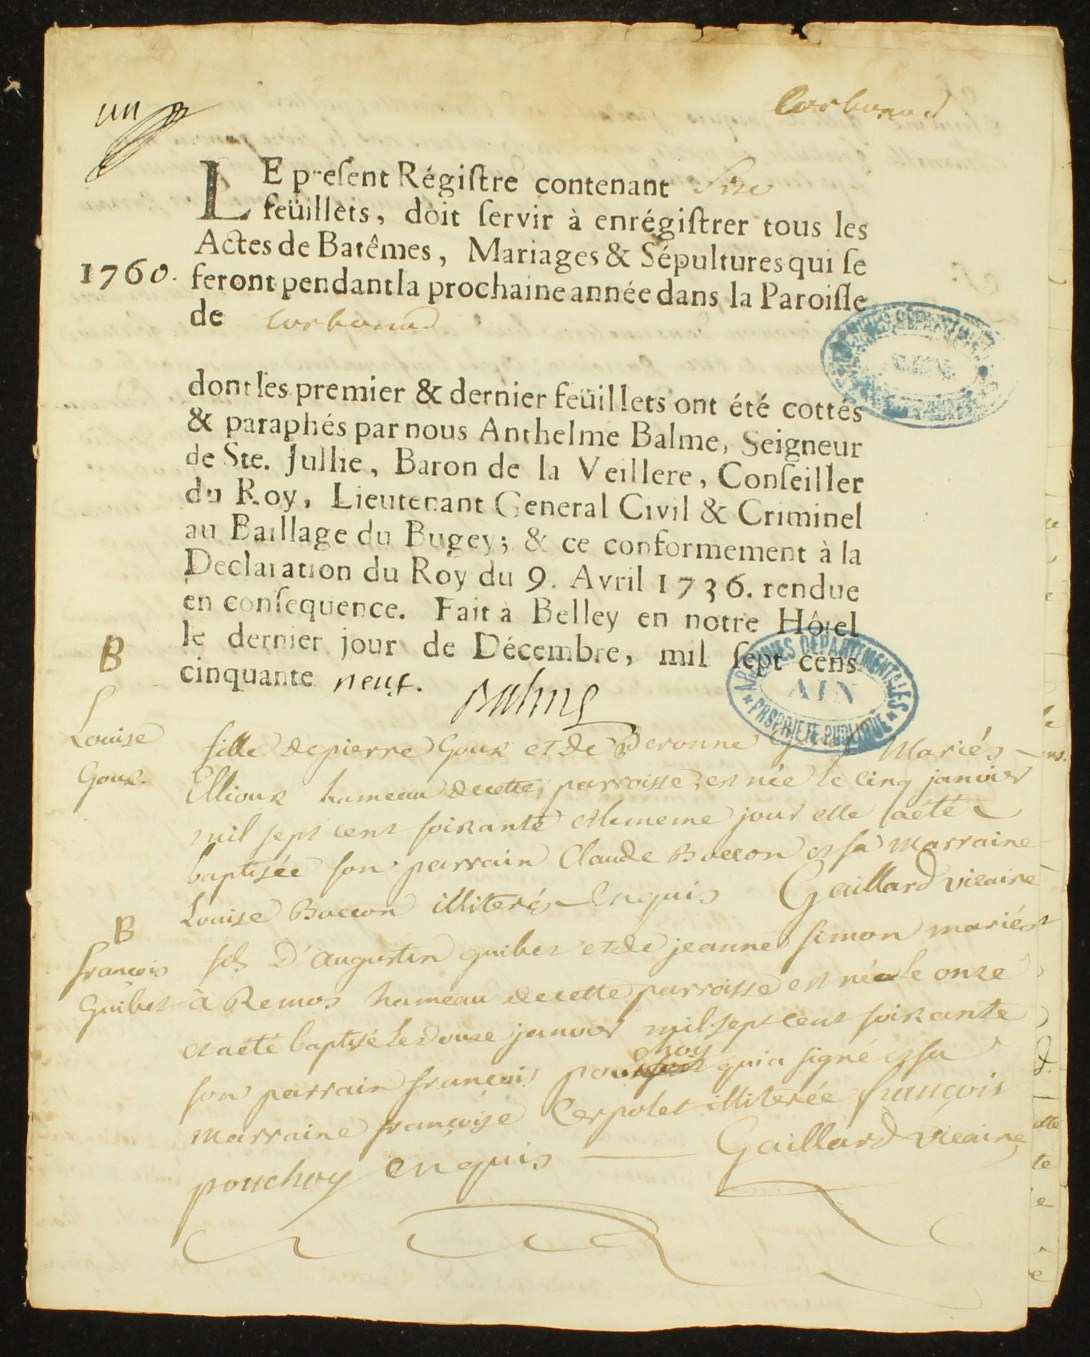 un
Corbonod
LE present Régistre contenant
feüillets, doit servir à enrégistrer tous les
Actes de Batêmes, Mariages & Sépultures qui se
1760.
feront pendant la prochaine année dans la Paroisse
de Corbonod
dont les premier & dernier feüillets ont été cottés
& paraphés par nous Anthelme Balme, Seigneur
de Ste. Jullie, Baron de la Veillere, Conseiller
du Roy, Lieutenant General Civil & Criminel
au Baillage du Bugey; & ce conformement à la
Declaration du Roy du 9. Avril 1736. rendue
en consequence. Fait à Belley en notre Hôtel
le dernier jour de Décembre, mil sept cens
cinquante neuf. Balme
ARCHIVES DEPARTEMENTALES
AIN
PROPRIETE PUBLIQUE
B
Louise
Goux.
fille de pierre Goux et de Mariés
Ellioux hameau de cette parroisse, est née le cinq janvier
mil sept cent soixante et le meme jour elle a été
baptisée son parrain Claude Boccon et sa Marraine
Louise Boccon illiterés Enquis Gaillard vicaire
B
françois
Guibet
fils D'augustin guibet et de jeanne simon mariés
à Remos hameau de cette parroisse est né le onze
et a été baptisé le douze janvier mil sept cent soixante
son parrain françois pouchoy qui a signé et sa
Marraine françoise Cerpolet illiterée françois
pouchoy Enquis Gaillard vicaire